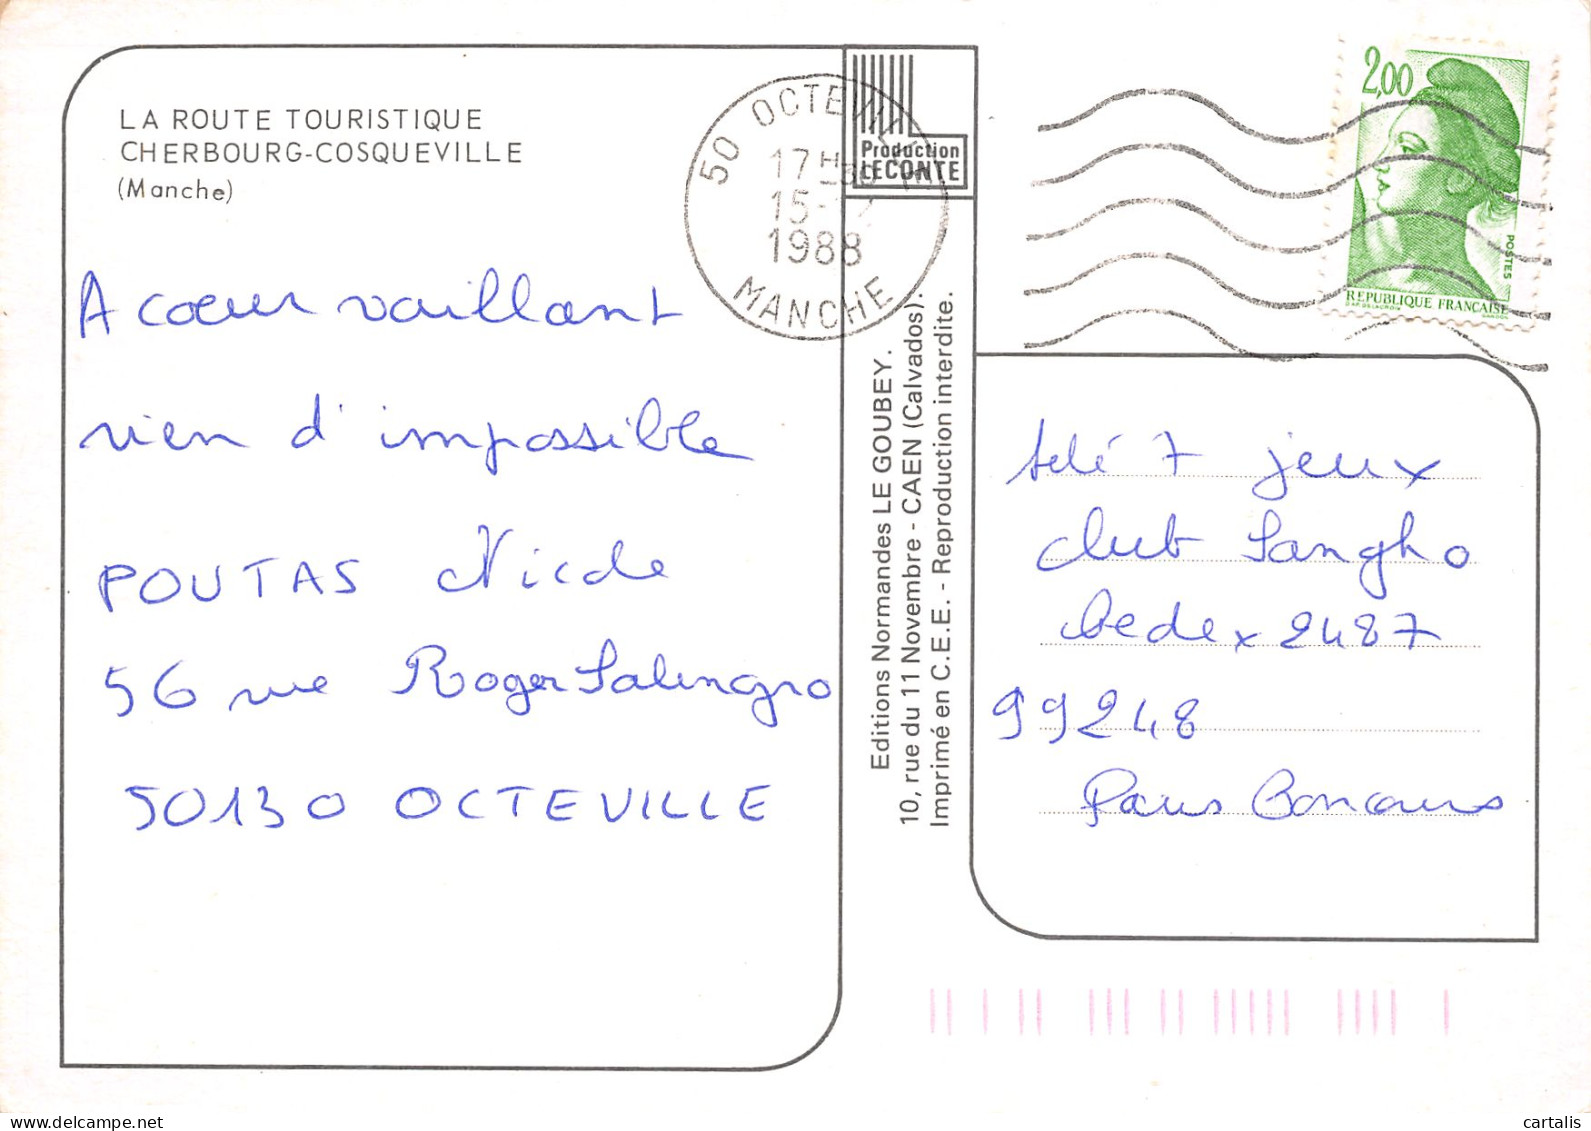 LA ROUTE TOURISTIQUE
CHERBOURG-COSQUEVILLE
(Manche)
A cœur vaillant
rien d'impossible
POUTAS Nicole
56 rue Roger Salengro
50130 OCTEVILLE
50 OCTEVILLE
17H30
15-
1988
MANCHE
Production
LECONTE
Editions Normandes LE GOUBEY.
10, rue du 11 Novembre - CAEN (Calvados).
Imprimé en C.E.E. - Reproduction interdite.
2,00
POSTES
REPUBLIQUE FRANÇAISE
télé 7 jeux
club Sangho
Cedex 2487
99248
Paris Concours
cartalis
www.delcampe.net